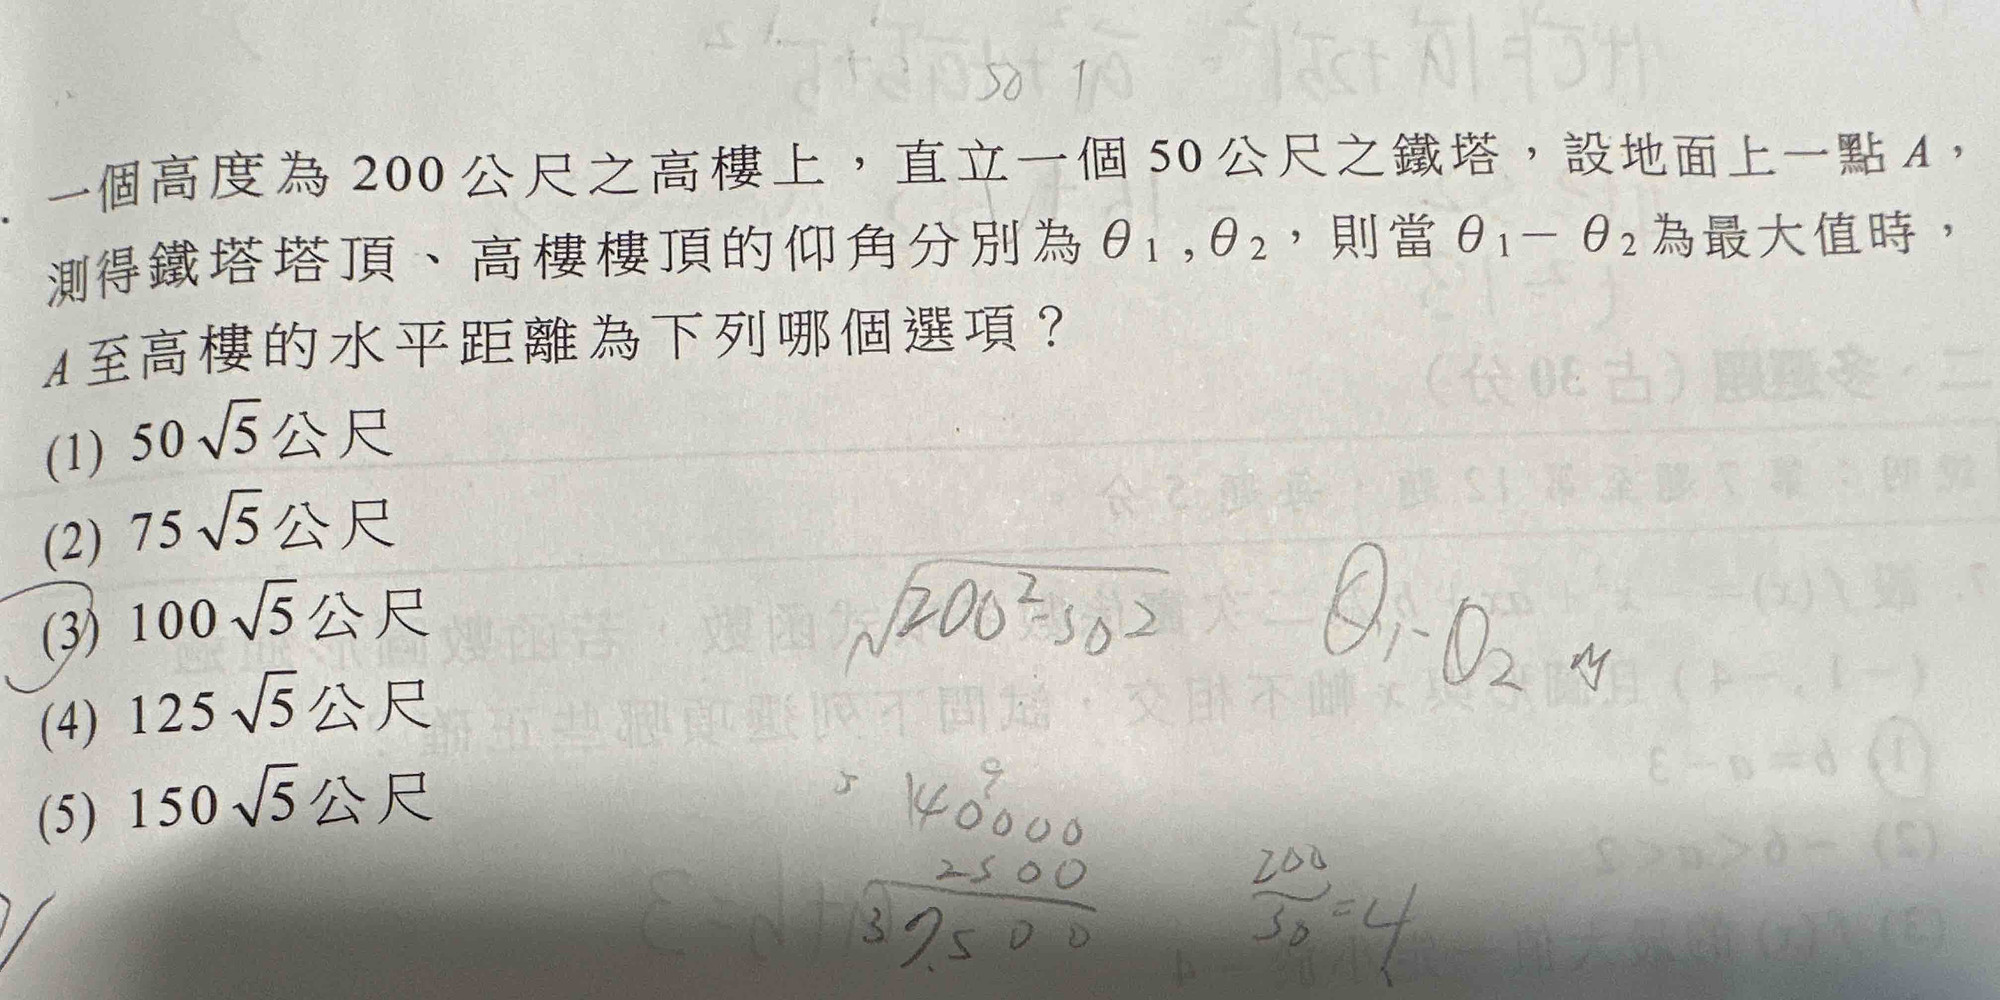 50 1
一個高度為 200 公尺之高樓上，直立一個 50 公尺之鐵塔，設地面上一點 A，
測得鐵塔塔頂、高樓樓頂的仰角分別為 θ1 , θ2，則當 θ1 − θ2 為最大值時，
A 至高樓的水平距離為下列哪個選項？
(1) 50√5 公尺
(2) 75√5 公尺
(3) 100√5 公尺
(4) 125√5 公尺
(5) 150√5 公尺
√200²-50²
θ1-θ2
140000
2500
37500
200/50=4